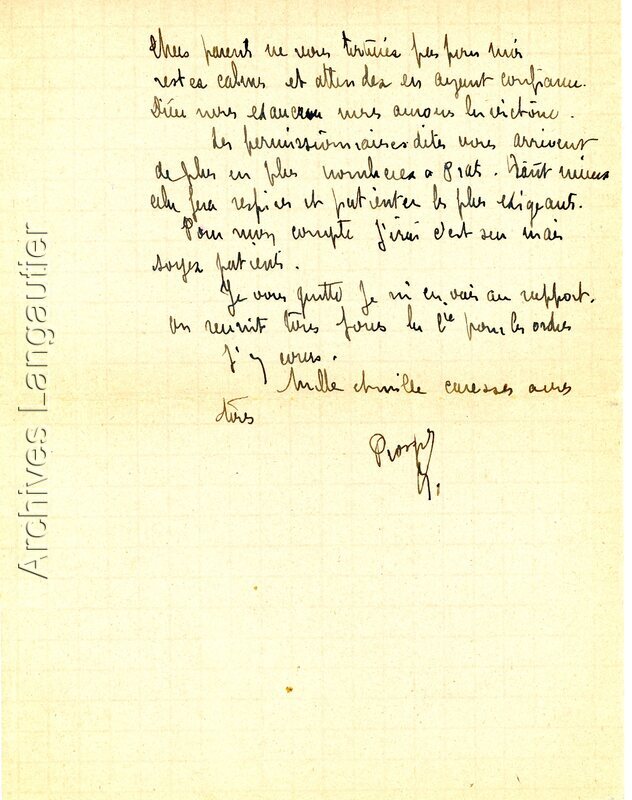 Chers parents ne vous torturés pas pour moi
restes calmes et attendez en ayant confiance.
Dieu nous exaucera nous aurons la victoire.
Les permissionnaires dites vous arrivent
de plus en plus nombreux a Prats. Tant mieux
cela fera respirer et patienter les plus exigeants.
Pour mon compte j'irai c'est sur mais
soyez patients.
Je vous quitte je m'en vais au rapport.
on reunit tous jours la Cie pour les ordres
J'y cours.
Mille et mille caresses a vous
tous
Prosper
Archives Langautier